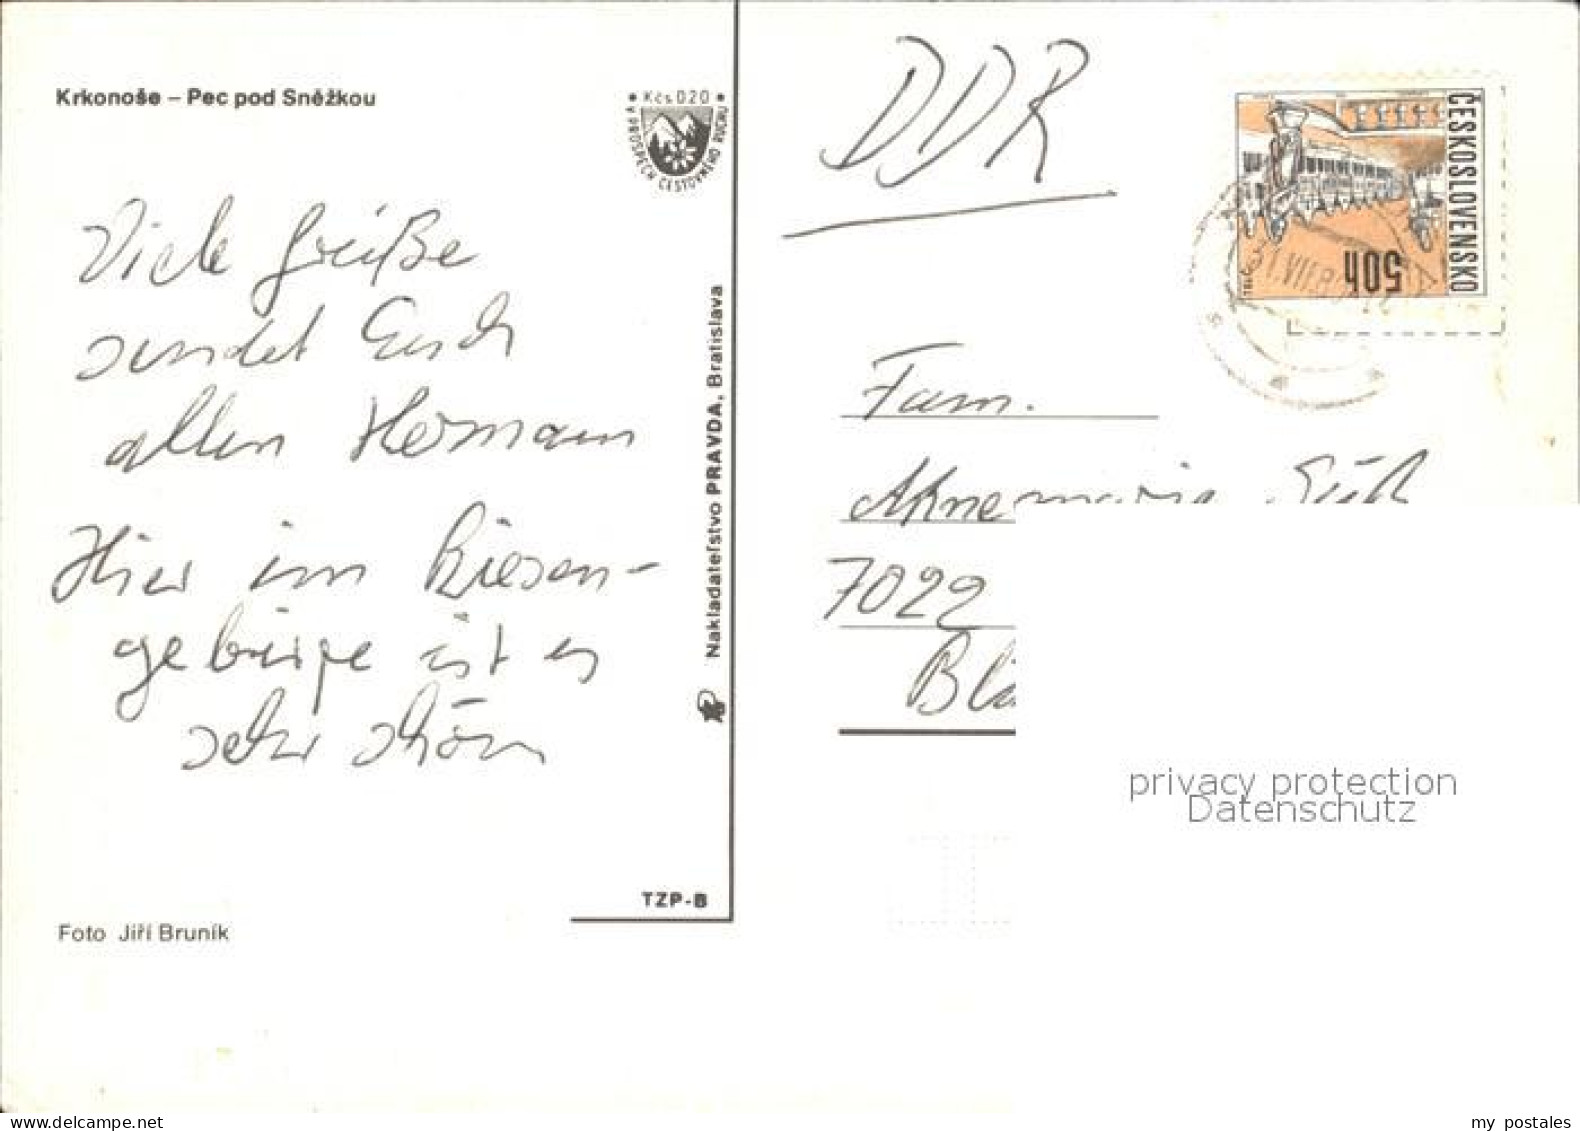 Krkonoše – Pec pod Sněžkou
• Kčs 0.20 •
V PROSPĚCH CESTOVNÉHO RUCHU
Viele Grüße
sendet Euch
allen Hermann
Hier im Riesen-
gebirge ist es
sehr schön
Foto Jiří Bruník
TZP-B
Nakladateľstvo PRAVDA, Bratislava
DDR
ČESKOSLOVENSKO
50h
Fam.
Annemarie
7022
privacy protection
Datenschutz
www.delcampe.net
my postales